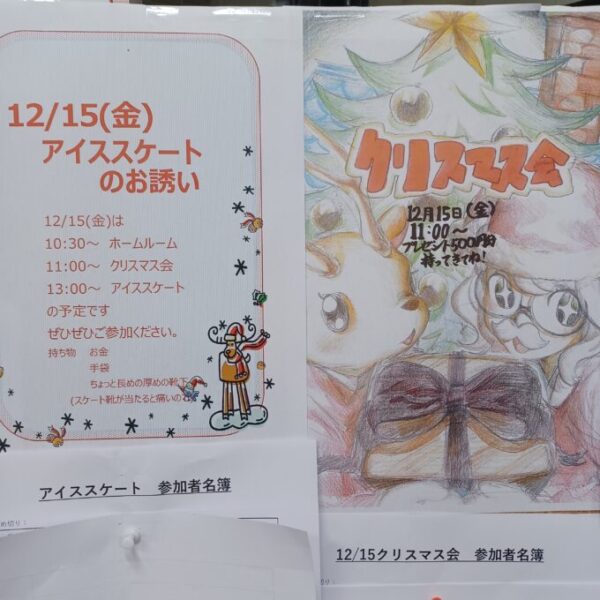 12/15(金)
アイススケート
のお誘い
12/15(金)は
10:30～ ホームルーム
11:00～ クリスマス会
13:00～ アイススケート
の予定です
ぜひぜひご参加ください。
持ち物 お金
手袋
ちょっと長めの厚めの靴下
(スケート靴が当たると痛いの
アイススケート 参加者名簿
め切り：
クリスマス会
12月15日(金)
11:00～
プレゼント500円分
持ってきてね!
12/15クリスマス会 参加者名簿